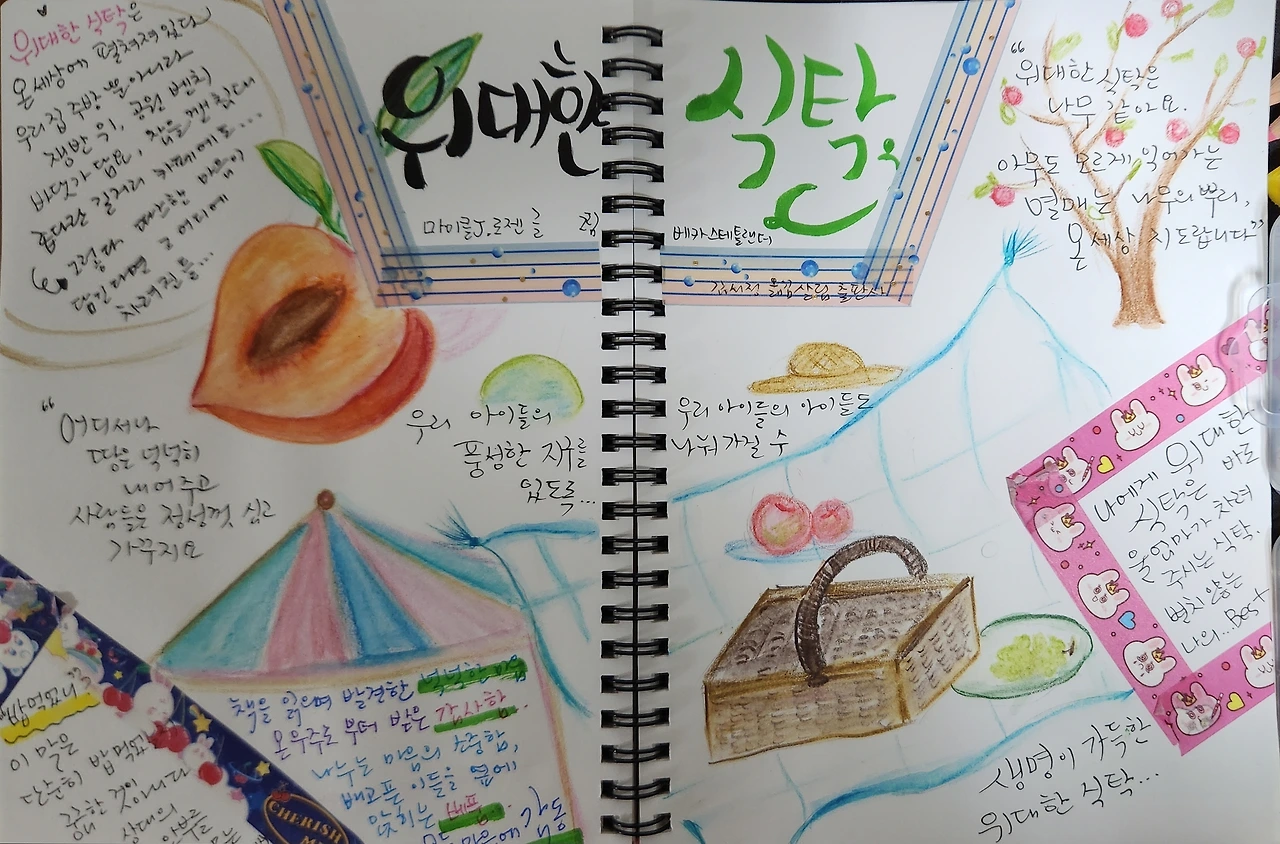 위대한 식탁은
온세상에 펼쳐져있다
우리집 주방 뿐아니라
쟁반 위, 공원 벤치
바닷가 담요,
커다란 길거리 카페에도...
그렇다 따뜻한 마음이
담긴다면 그 어디에
차려진들...
위대한 식탁
마이클J.로젠 글
그림
베카스테틀랜더
살림 출판사
"위대한 식탁은
나무 같아요.
아무도 모르게 익어가는
열매는 나무의 뿌리,
온 세상 지도랍니다"
"어디서나
땅은 넉넉히
내어 주고
사람들은 정성껏 심고
가꾸지요
우리 아이들의
풍성한 지구를
있도록...
우리 아이들의 아이들도
나눠 가질 수
나에게 위대한
식탁은 바로
울엄마가 차려
주시는 식탁.
변치 않는
나의...Best
"밥먹었니?"
이 말은
단순히 밥 먹었
궁한 것이 아니다
상대의
안부를
CHERISH
책을 읽으며 발견한 넉넉한 마음
온 우주로 부터 받은 감사함.
나누는 마음의 소중함,
배고픈 이들을 옆에
앉히는 베품..
마음에 감동
생명이 가득한
위대한 식탁...